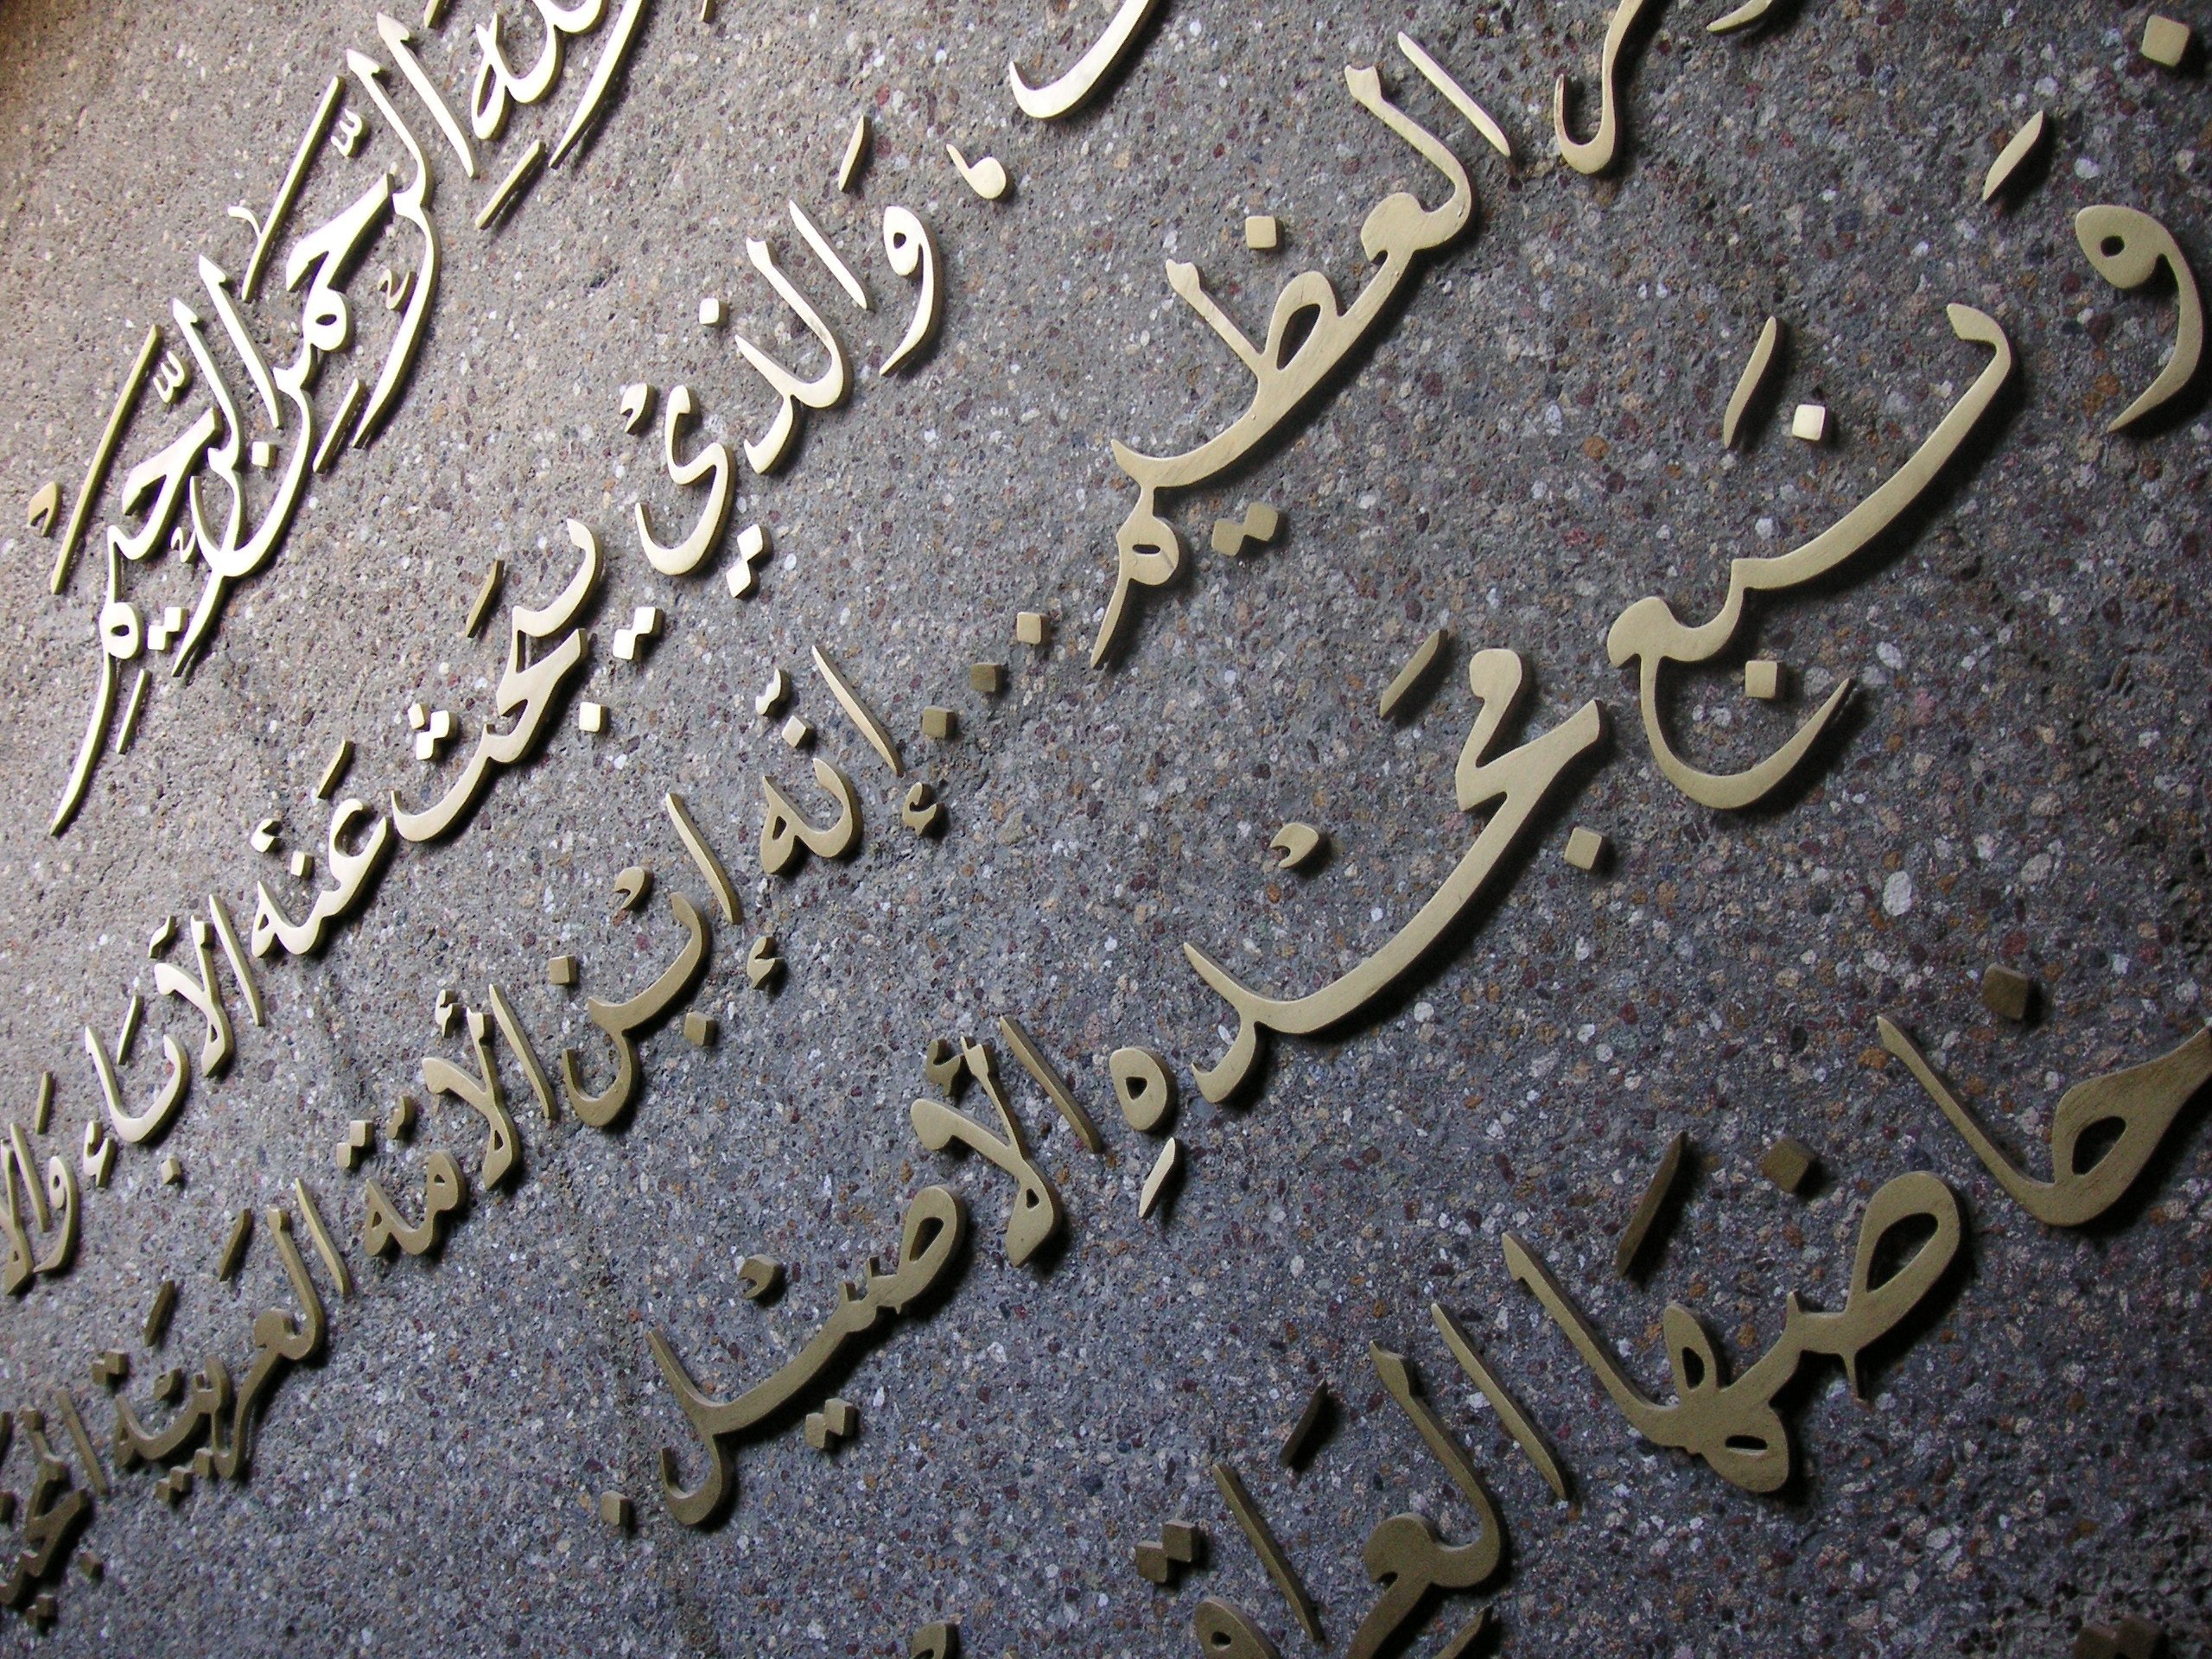 الرَّحمنِ الرَّحيمِ
وَالذيْ يبحَث عَنْه الآبَاء
العظيم ... إنّه إبْن الأمّة العَربيَّة
وَنَبع مَجْدهِ الأصيْل.
خاضهَا